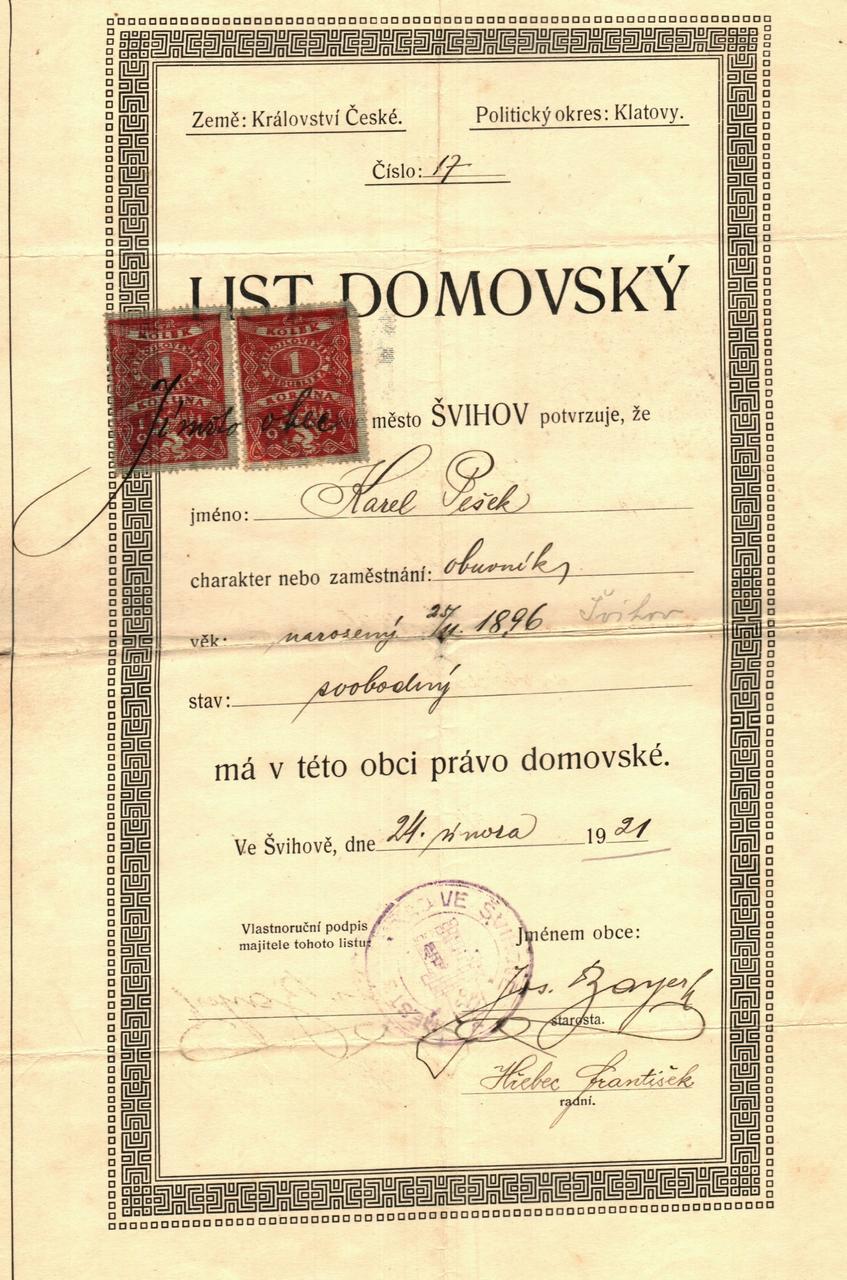 Země: Království České. Politický okres: Klatovy.
Číslo: 17
LIST DOMOVSKÝ
KOLEK KOLEK
1 1
KORUNA KORUNA
Jímto obec
město ŠVIHOV potvrzuje, že
jméno: Karel Pešek
charakter nebo zaměstnání: obuvník
věk: narozený 25/II. 1896 Švihov
stav: svobodný
má v této obci právo domovské.
Ve Švihově, dne 24. února 1921
Vlastnoruční podpis
majitele tohoto listu:
VE ŠVI
Jménem obce:
Jos. Bayer
starosta.
Hřebec František
radní.